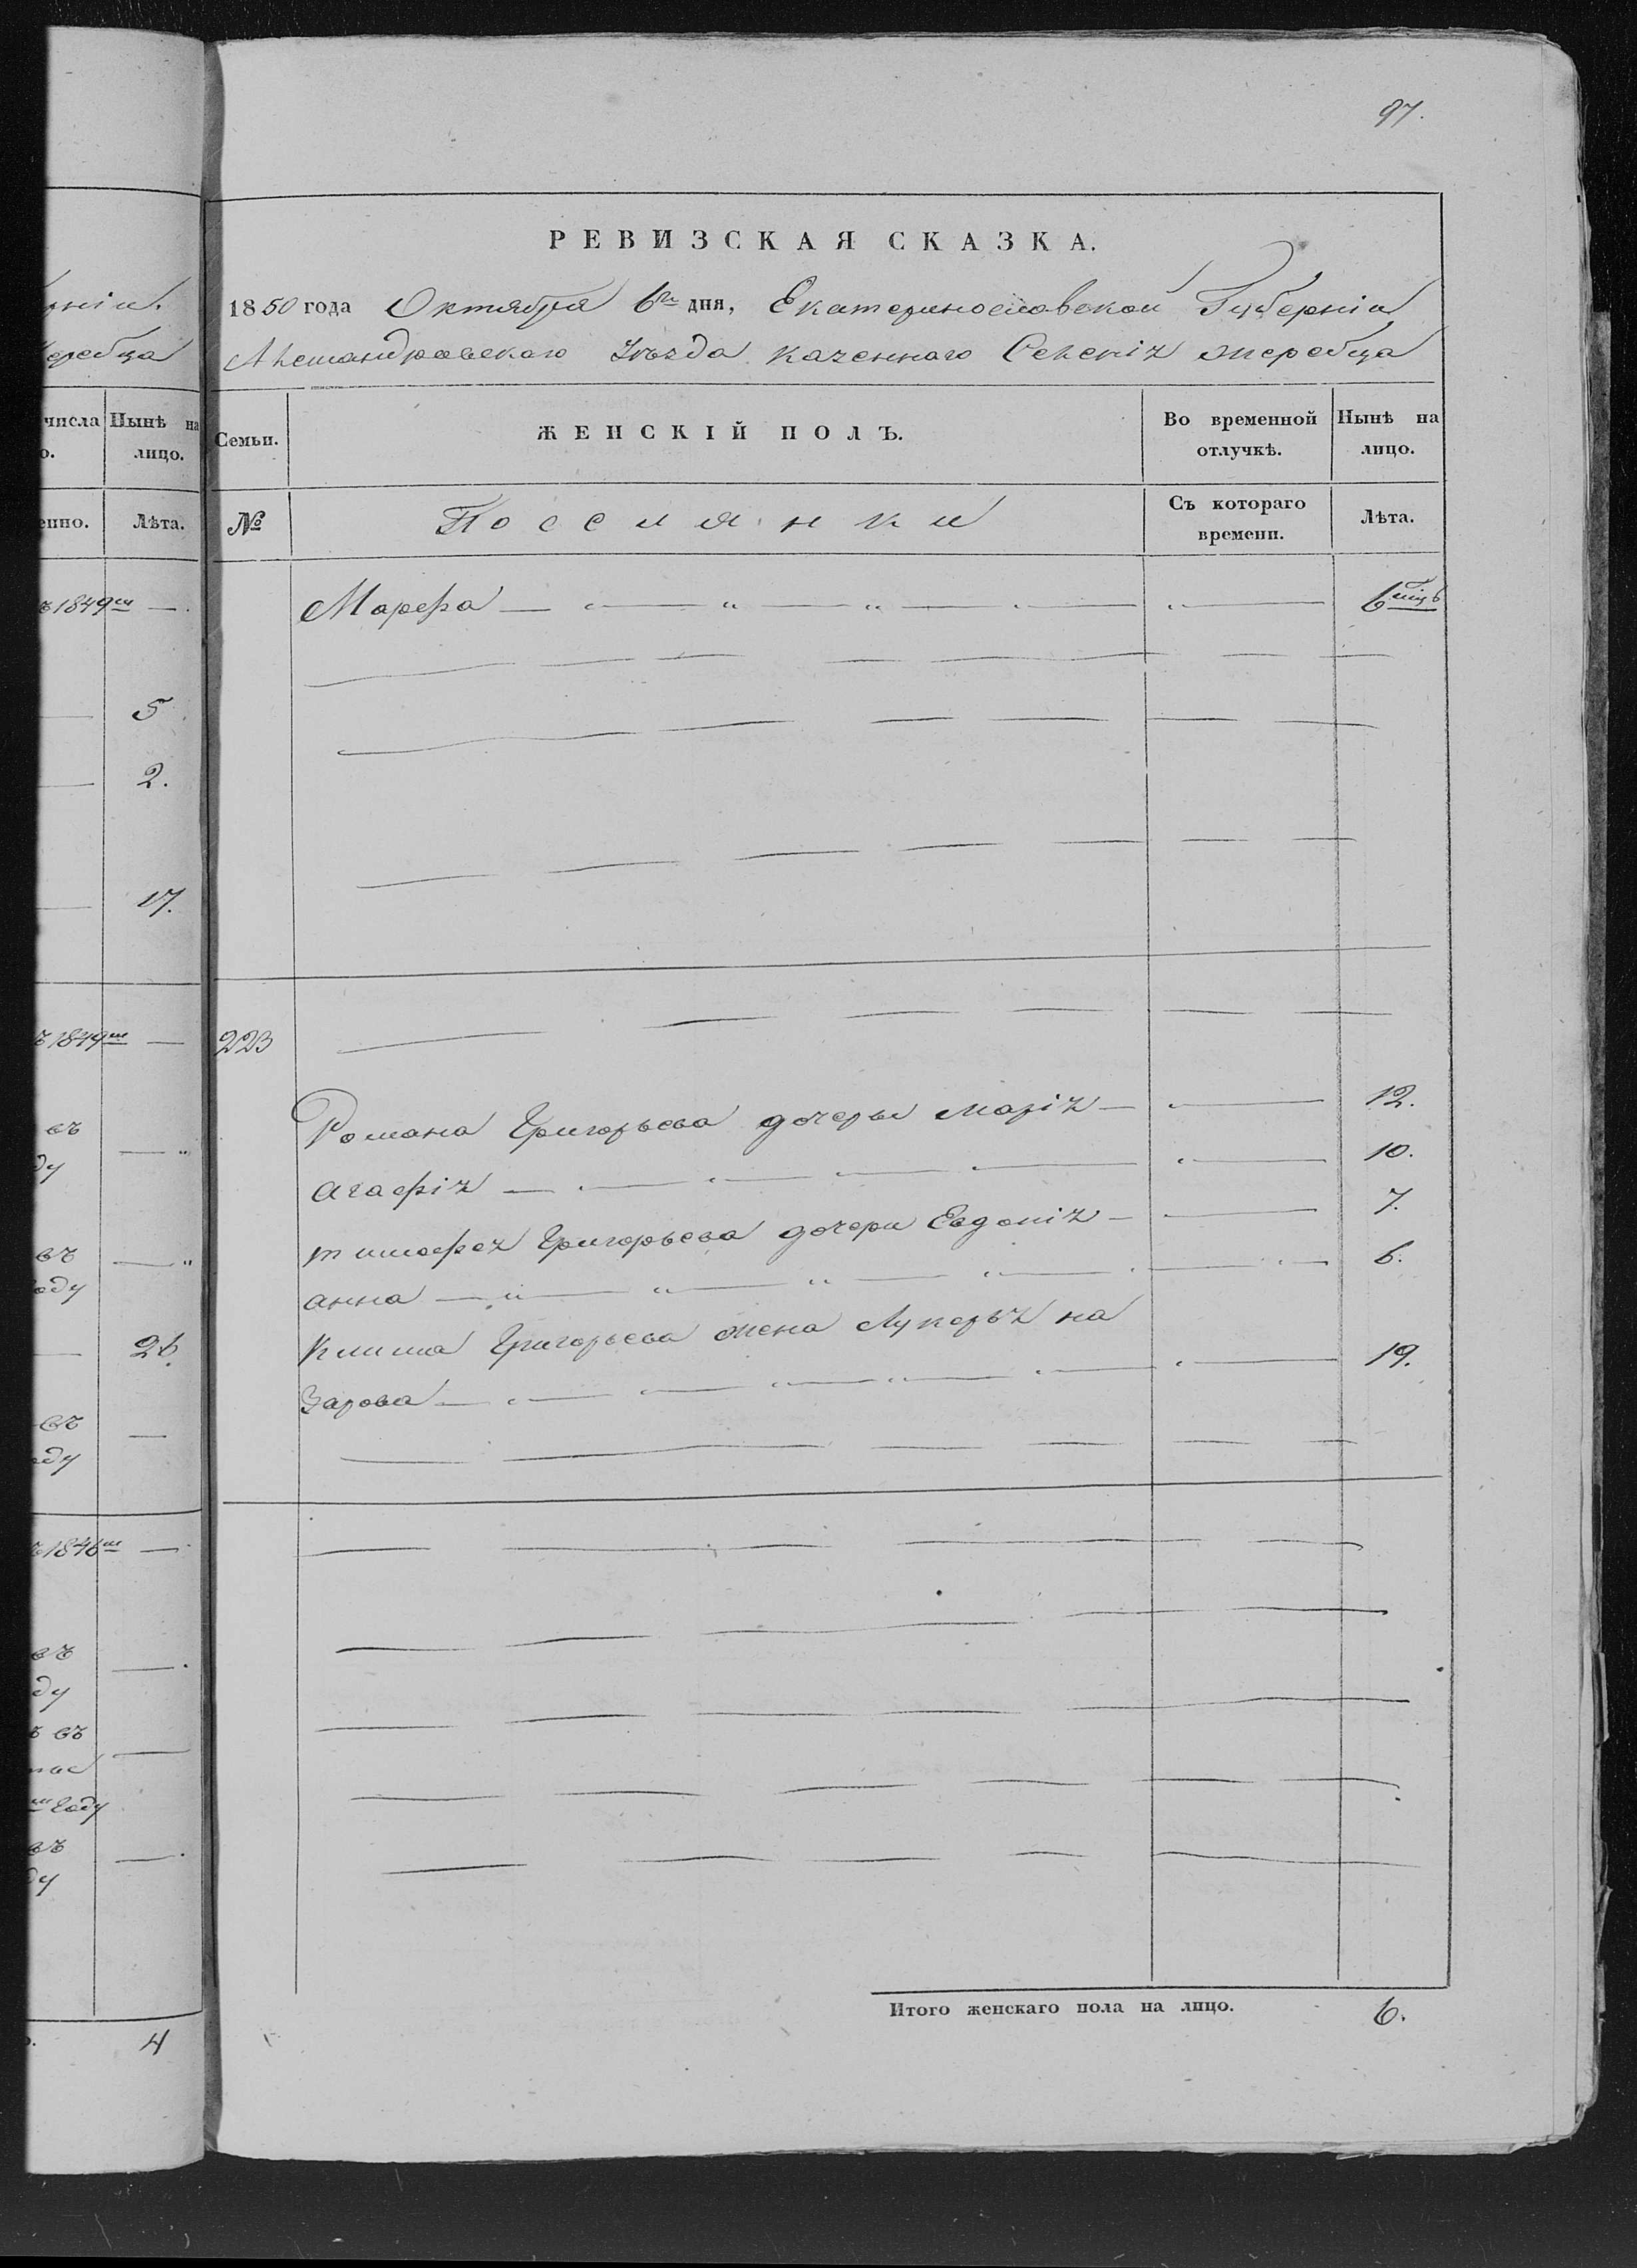 рніи.
еребца
числа Нынѣ на
о. лицо.
енно. Лѣта.
ъ 1849м —
5.
2.
17.
ъ 1849м —
въ
ду
въ
оду
26.
въ
оду
1846м —
въ
ду
ъ въ
м году
въ
ду
4
97.
РЕВИЗСКАЯ СКАЗКА.
1850 года Октября 6го дня, Екатеринославской Губерніи
Александровскаго Уѣзда казеннаго Селенія жеребца
Семьи. ЖЕНСКІЙ ПОЛЪ. Во временной отлучкѣ. Нынѣ на лицо.
№ Поселянки Съ котораго времени. Лѣта.
Марфа — 6 мцъ
223
Романа Григорьева дочери Марія — 12.
Агафія — 10.
Тимофея Григорьева дочери Евдокія — 7.
Анна — 6.
Клима Григорьева жена Лукерья на
зарова — 19.
Итого женскаго пола на лицо. 6.